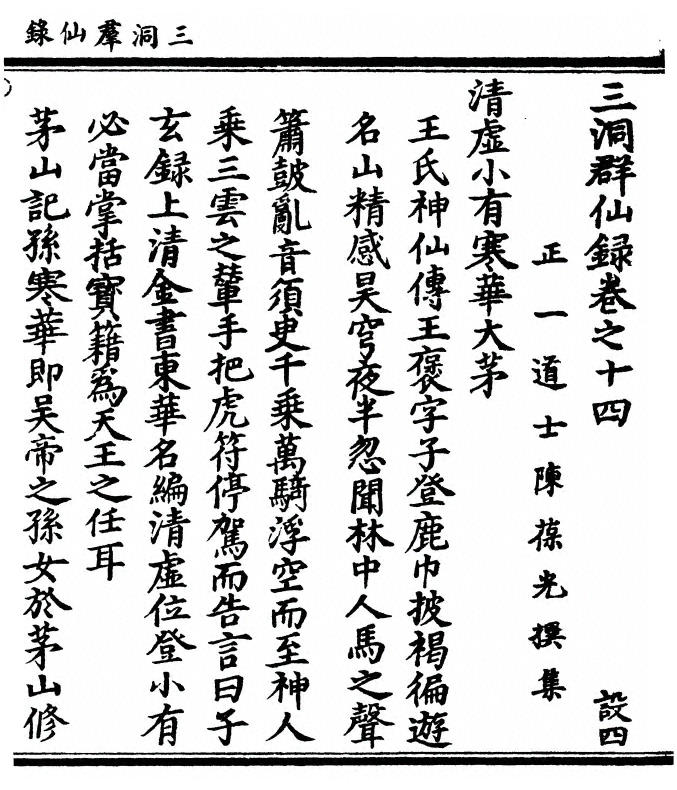 三洞羣仙錄
三洞群仙録卷之十四
設四
正一道士陳葆光撰集
清虛小有寒華大茅
王氏神仙傳王褒字子登鹿巾披褐徧遊
名山精感昊穹夜半忽聞林中人馬之聲
簫鼓亂音須臾千乘萬騎浮空而至神人
乘三雲之輦手把虎符停駕而告言曰子
玄録上清金書東華名編清虛位登小有
必當掌括寶籍為天王之任耳
茅山記孫寒華即吴帝之孫女於茅山修